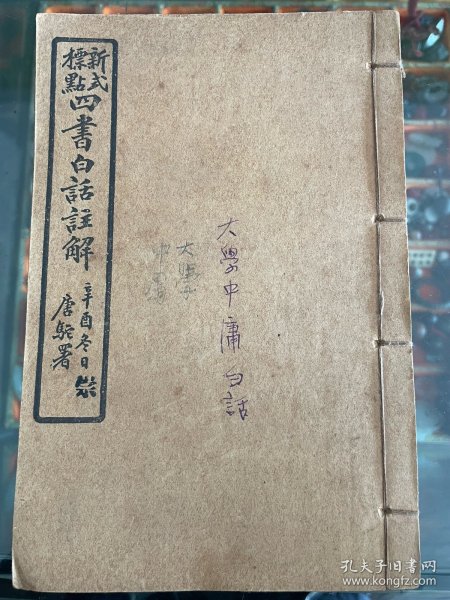 新式
標點
四書白話註解
辛酉冬日
唐駝署
大學中庸白話
大學
中庸
孔夫子旧书网
www.kongfz.com